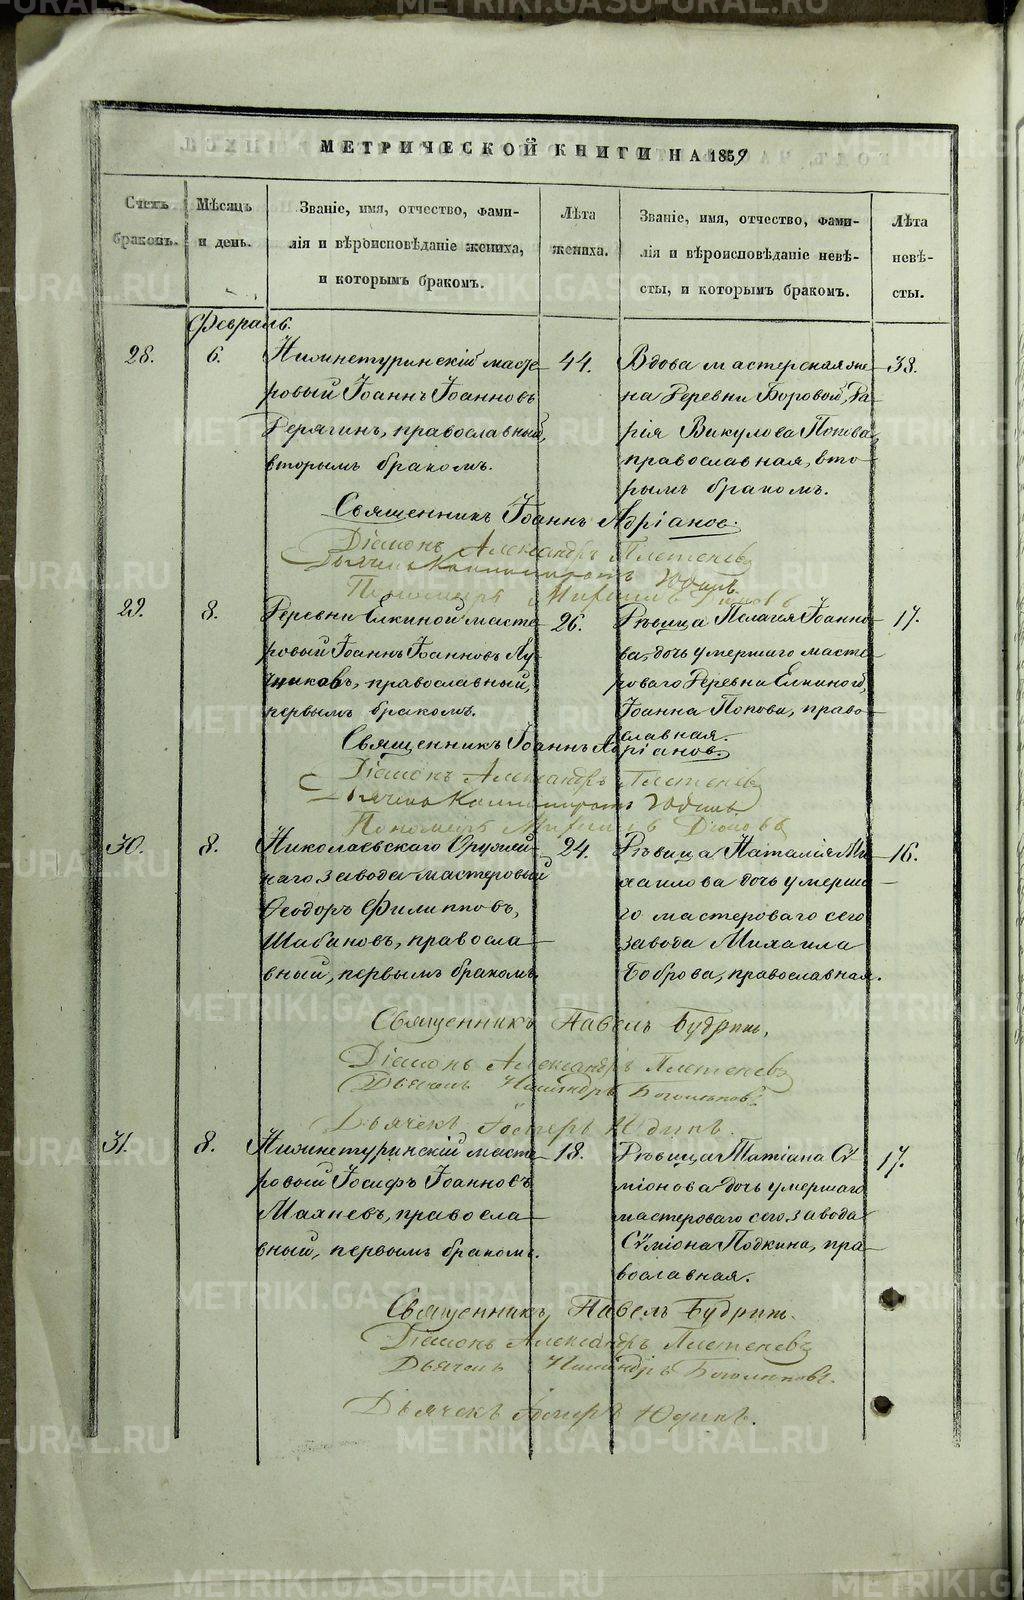 МЕТРИЧЕСКОЙ КНИГИ НА 1859
Счетъ браковъ.
Мѣсяцъ и день.
Званіе, имя, отчество, фами-
лія и вѣроисповѣданіе жениха,
и которымъ бракомъ.
Лѣта жениха.
Званіе, имя, отчество, фами-
лія и вѣроисповѣданіе невѣ-
сты, и которымъ бракомъ.
Лѣта невѣ-
сты.
Февраль.
28.
6.
Нижнетуринскій масте
ровый Іоаннъ Іоанновъ
Дерягинъ, православный,
вторымъ бракомъ.
44.
Вдова мастерская же
на Деревни Боровой, Да
рія Викулова Попова,
православная, вто
рымъ бракомъ.
38.
Священникъ Іоаннъ Адріанов.
Діаконъ Александръ Плетеневъ
Юдинъ
Пономарь Михаилъ
29.
8.
Деревни Елкиной масте
ровый Іоаннъ Іоанновъ Лу
чниковъ, православный,
первымъ бракомъ.
26.
Дѣвица Пелагея Іоанно
ва, дочь умершаго масте
роваго Деревни Елкиной,
Іоанна Попова, право
славная.
17.
Священникъ Іоаннъ Адріанов.
Діаконъ Александръ Плетеневъ
Юдинъ
Пономарь Михаилъ
30.
8.
Николаевскаго Оружей
наго завода мастеровый
Ѳеодоръ Филипповъ,
Шабановъ, правосла
вный, первымъ бракомъ
24.
Дѣвица Наталія Ми
хаилова дочь умерша
го мастероваго сего
завода Михаила
Боброва, православная.
16.
Священникъ Павелъ Будринъ,
Діаконъ Александръ Плетеневъ
Дьячекъ
Дьячекъ Юдинъ.
31.
8.
Нижнетуринскій масте
ровый Іосифъ Іоанновъ
Маянев, правосла
вный, первымъ бракомъ.
18.
Дѣвица Татіана Сѵ
міонова дочь умершаго
мастероваго сего завода
Сѵміона Подкина, пра
вославная.
17.
Священникъ Павелъ Будринъ.
Діаконъ Александръ Плетеневъ
Дьячекъ
Дьячекъ Юдинъ.
METRIKI.GASO-URAL.RU